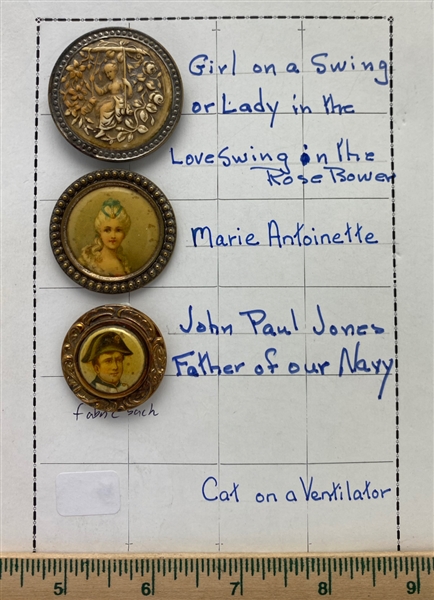 Girl on a Swing
or Lady in the
Love Swing in the
Rose Bower
Marie Antoinette
John Paul Jones
Father of our Navy
fabric back
Cat on a Ventilator
5 6 7 8 9